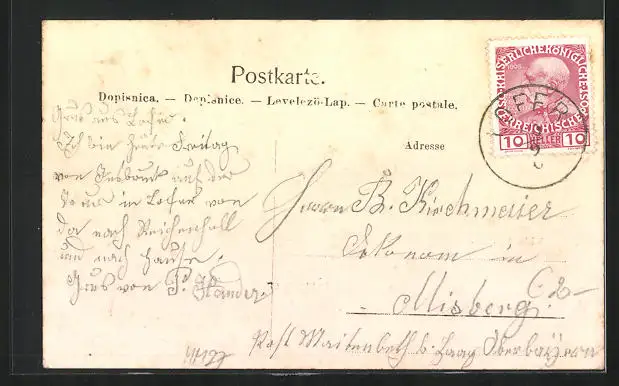 Postkarte.
Dopisnica. — Dopisnice. — Levelező-Lap. — Carte postale.
Adresse
KAISERLICHE KÖNIGLICHE POST
1908
ÖSTERREICHISCHE
10 HELLER 10
LOFER
Gruß aus Lofer.
Ich bin heute Freitag
von Insbruck auf der
in Lofer von
da nach Reichenhall
und nach Hause.
Grus von P.
Herrn B. Kirchmaier
Ökonom in
Misberg.
Post Maitenbeth b. Haag Oberbayern